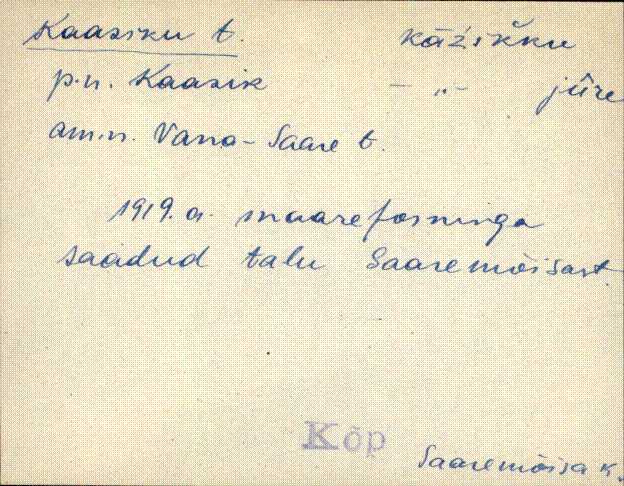 Kaasiku t. kāźikku
p.n. Kaasik - " - jūre
am.n. Vana-Saare t.
1919. a. maareformiga
saadud talu Saaremõisast
Kõp
Saaremõisa k.